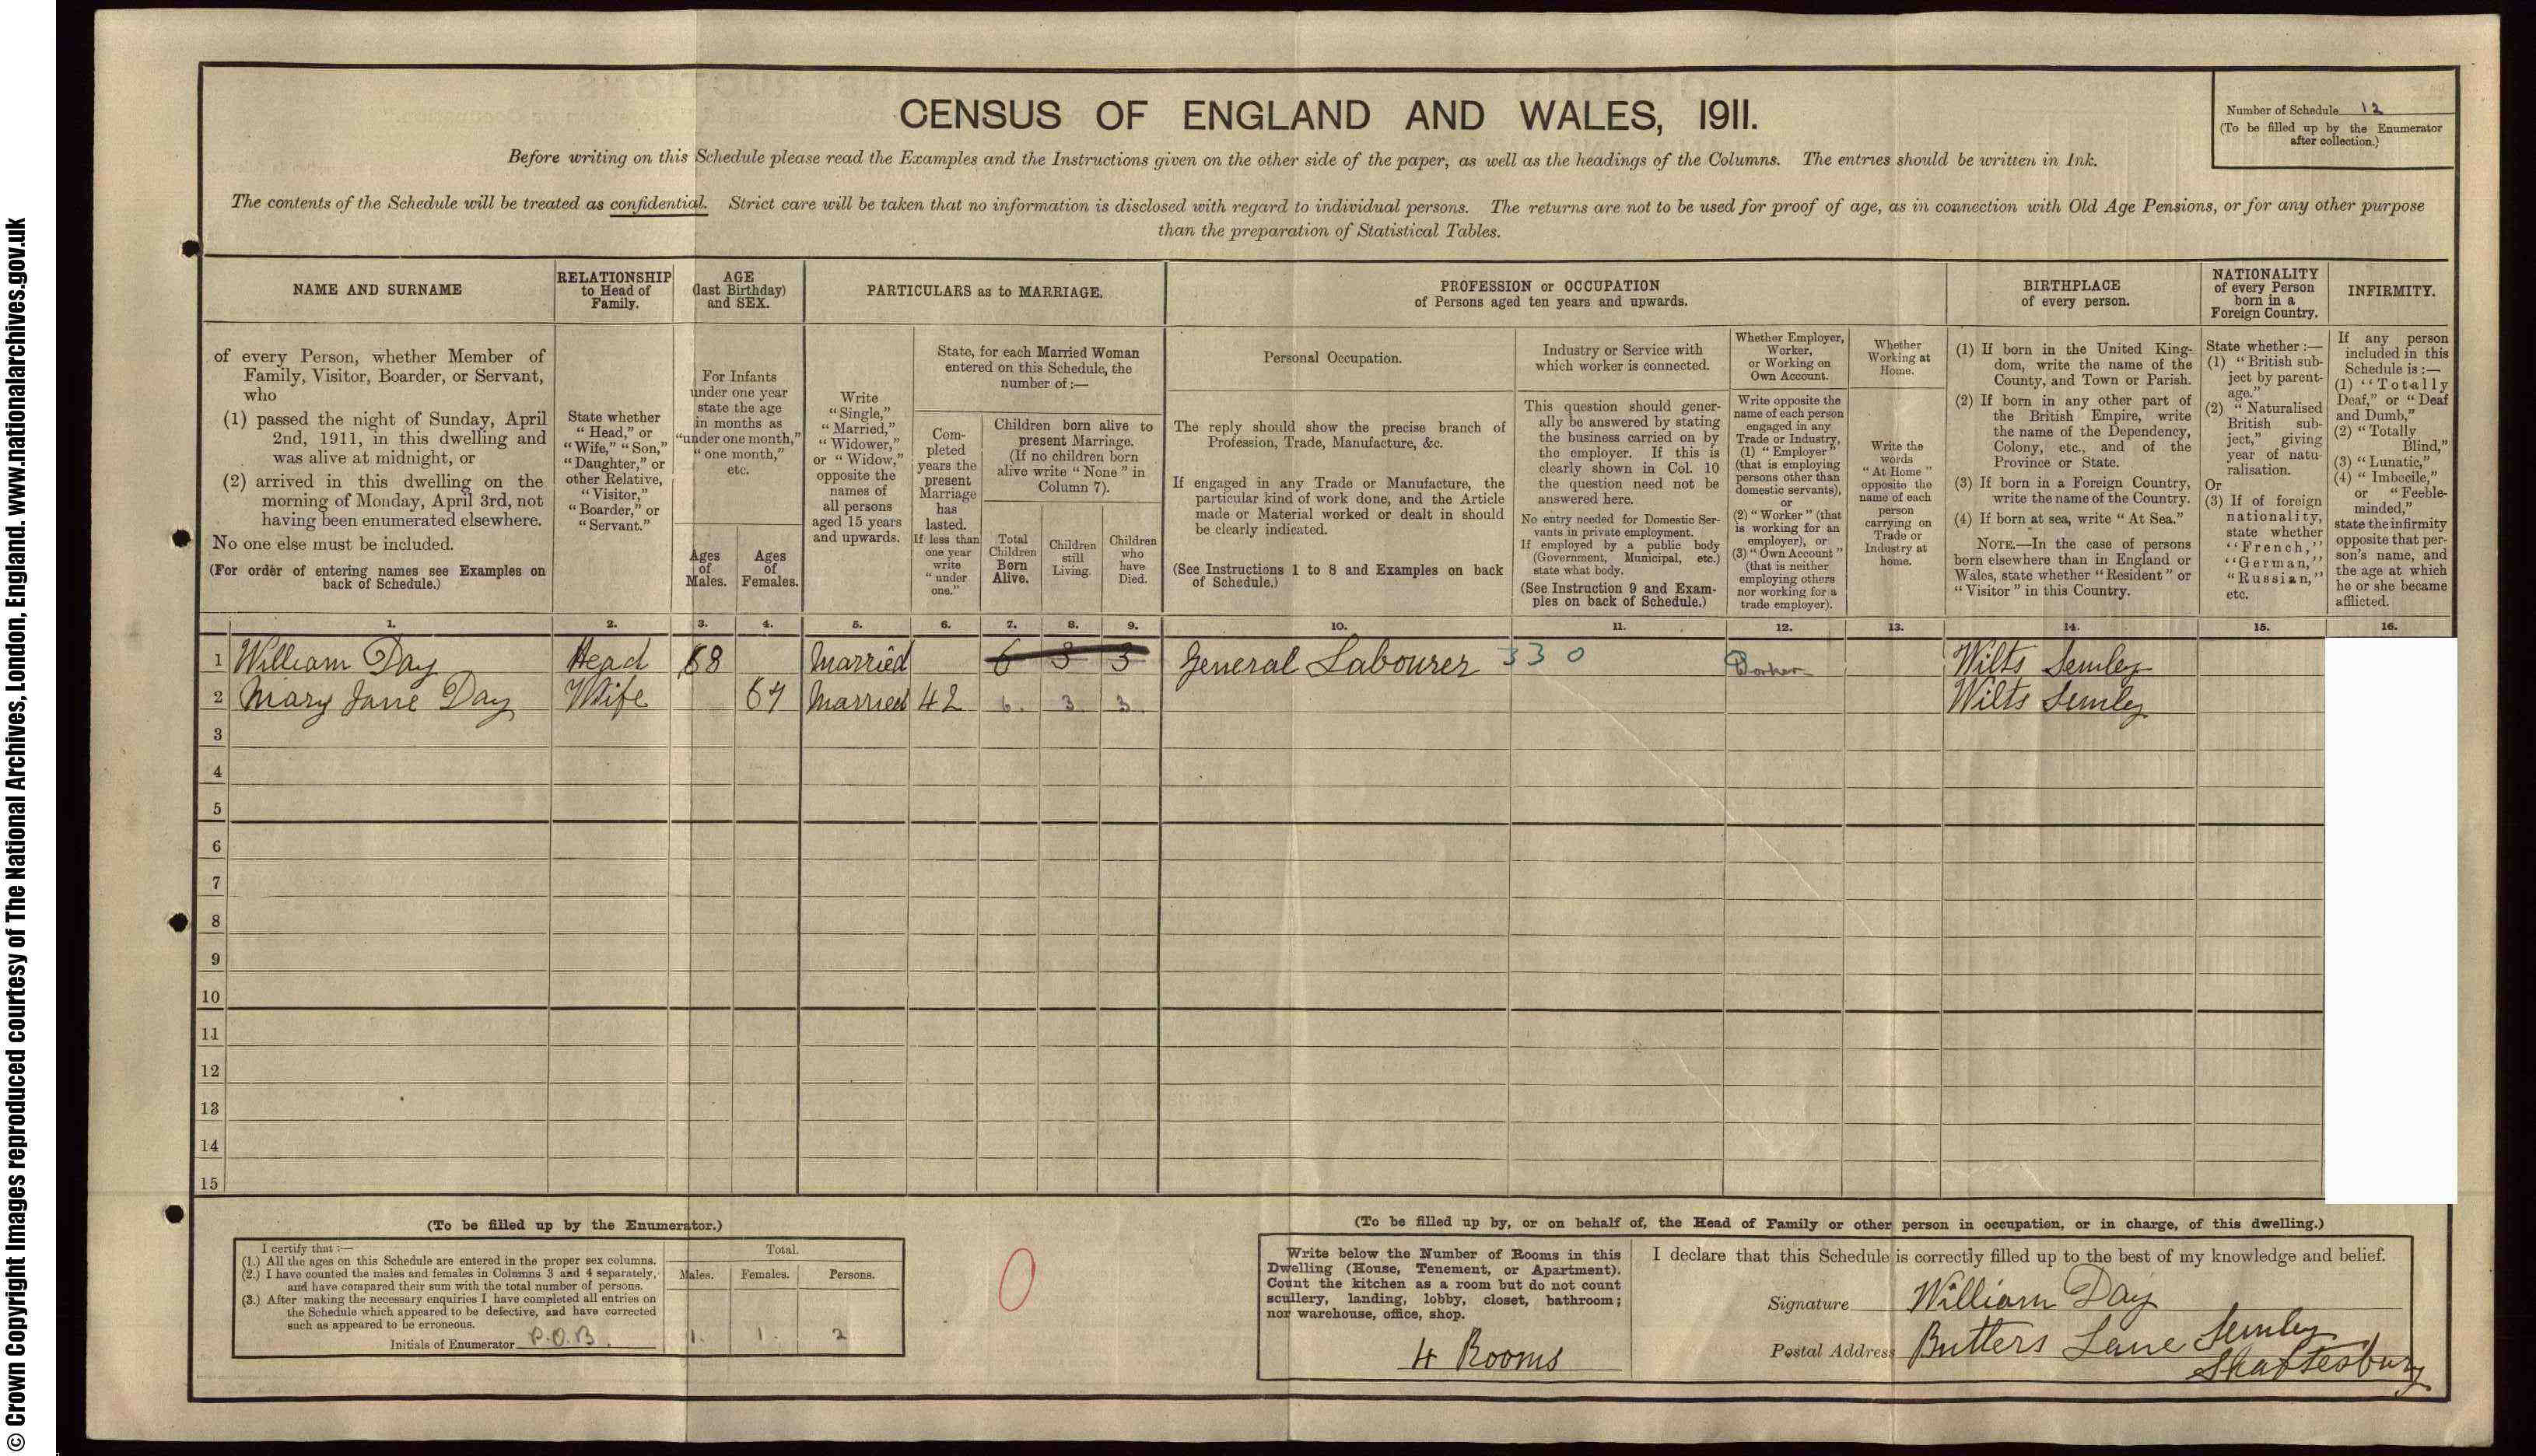 © Crown Copyright Images reproduced courtesy of The National Archives, London, England. www.nationalarchives.gov.uk
CENSUS OF ENGLAND AND WALES, 1911.
Number of Schedule 12
(To be filled up by the Enumerator
after collection.)
Before writing on this Schedule please read the Examples and the Instructions given on the other side of the paper, as well as the headings of the Columns. The entries should be written in Ink.
The contents of the Schedule will be treated as confidential. Strict care will be taken that no information is disclosed with regard to individual persons. The returns are not to be used for proof of age, as in connection with Old Age Pensions, or for any other purpose
than the preparation of Statistical Tables.
NAME AND SURNAME
RELATIONSHIP
to Head of
Family.
AGE
(last Birthday)
and SEX.
PARTICULARS as to MARRIAGE.
PROFESSION or OCCUPATION
of Persons aged ten years and upwards.
BIRTHPLACE
of every person.
NATIONALITY
of every Person
born in a
Foreign Country.
INFIRMITY.
of every Person, whether Member of
Family, Visitor, Boarder, or Servant,
who
(1) passed the night of Sunday, April
2nd, 1911, in this dwelling and
was alive at midnight, or
(2) arrived in this dwelling on the
morning of Monday, April 3rd, not
having been enumerated elsewhere.
No one else must be included.
(For order of entering names see Examples on
back of Schedule.)
State whether
"Head," or
"Wife," "Son,"
"Daughter," or
other Relative,
"Visitor,"
"Boarder," or
"Servant."
For Infants
under one year
state the age
in months as
"under one month,"
"one month,"
etc.
Ages
of
Males.
Ages
of
Females.
Write
"Single,"
"Married,"
"Widower,"
or "Widow,"
opposite the
names of
all persons
aged 15 years
and upwards.
State, for each Married Woman
entered on this Schedule, the
number of :—
Com-
pleted
years the
present
Marriage
has
lasted.
If less than
one year
write
"under
one."
Children born alive to
present Marriage.
(If no children born
alive write "None" in
Column 7).
Total
Children
Born
Alive.
Children
still
Living.
Children
who
have
Died.
Personal Occupation.
The reply should show the precise branch of
Profession, Trade, Manufacture, &c.
If engaged in any Trade or Manufacture, the
particular kind of work done, and the Article
made or Material worked or dealt in should
be clearly indicated.
(See Instructions 1 to 8 and Examples on back
of Schedule.)
Industry or Service with
which worker is connected.
This question should gener-
ally be answered by stating
the business carried on by
the employer. If this is
clearly shown in Col. 10
the question need not be
answered here.
No entry needed for Domestic Ser-
vants in private employment.
If employed by a public body
(Government, Municipal, etc.)
state what body.
(See Instruction 9 and Exam-
ples on back of Schedule.)
Whether Employer,
Worker,
or Working on
Own Account.
Write opposite the
name of each person
engaged in any
Trade or Industry,
(1) "Employer"
(that is employing
persons other than
domestic servants),
or
(2) "Worker" (that
is working for an
employer), or
(3) "Own Account"
(that is neither
employing others
nor working for a
trade employer).
Whether
Working at
Home.
Write the
words
"At Home"
opposite the
name of each
person
carrying on
Trade or
Industry at
home.
(1) If born in the United King-
dom, write the name of the
County, and Town or Parish.
(2) If born in any other part of
the British Empire, write
the name of the Dependency,
Colony, etc., and of the
Province or State.
(3) If born in a Foreign Country,
write the name of the Country.
(4) If born at sea, write "At Sea."
NOTE.—In the case of persons
born elsewhere than in England or
Wales, state whether "Resident" or
"Visitor" in this Country.
State whether :—
(1) "British sub-
ject by parent-
age."
(2) "Naturalised
British sub-
ject," giving
year of natu-
ralisation.
Or
(3) If of foreign
nationality,
state whether
"French,"
"German,"
"Russian,"
etc.
If any person
included in this
Schedule is :—
(1) "Totally
Deaf," or "Deaf
and Dumb,"
(2) "Totally
Blind,"
(3) "Lunatic,"
(4) "Imbecile,"
or "Feeble-
minded,"
state the infirmity
opposite that per-
son's name, and
the age at which
he or she became
afflicted.
1. 2. 3. 4. 5. 6. 7. 8. 9. 10. 11. 12. 13. 14. 15. 16.
1 William Day Head 68 Married 6 3 3 General Labourer 330 Worker Wilts Semley
2 Mary Jane Day Wife 67 Married 42 6. 3 3. Wilts Semley
3
4
5
6
7
8
9
10
11
12
13
14
15
(To be filled up by the Enumerator.)
I certify that :—
(1.) All the ages on this Schedule are entered in the proper sex columns.
(2.) I have counted the males and females in Columns 3 and 4 separately,
and have compared their sum with the total number of persons.
(3.) After making the necessary enquiries I have completed all entries on
the Schedule which appeared to be defective, and have corrected
such as appeared to be erroneous.
Initials of Enumerator P.O.B.
Total.
Males. Females. Persons.
1. 1. 2
0
(To be filled up by, or on behalf of, the Head of Family or other person in occupation, or in charge, of this dwelling.)
Write below the Number of Rooms in this
Dwelling (House, Tenement, or Apartment).
Count the kitchen as a room but do not count
scullery, landing, lobby, closet, bathroom;
nor warehouse, office, shop.
4 Rooms
I declare that this Schedule is correctly filled up to the best of my knowledge and belief.
Signature William Day
Postal Address Butters Lane Semley
Shaftesbury